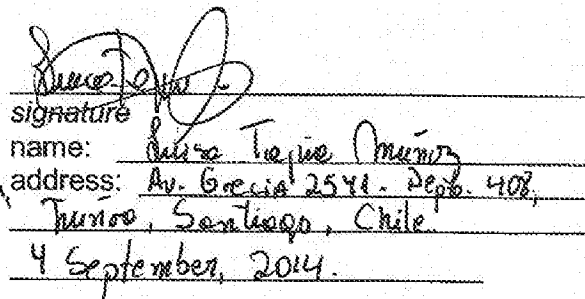 signature
name: Luisa Tapia Muñoz
address: Av. Grecia 2541. Depto. 408,
Ñuñoa, Santiago, Chile.
4 September, 2014.